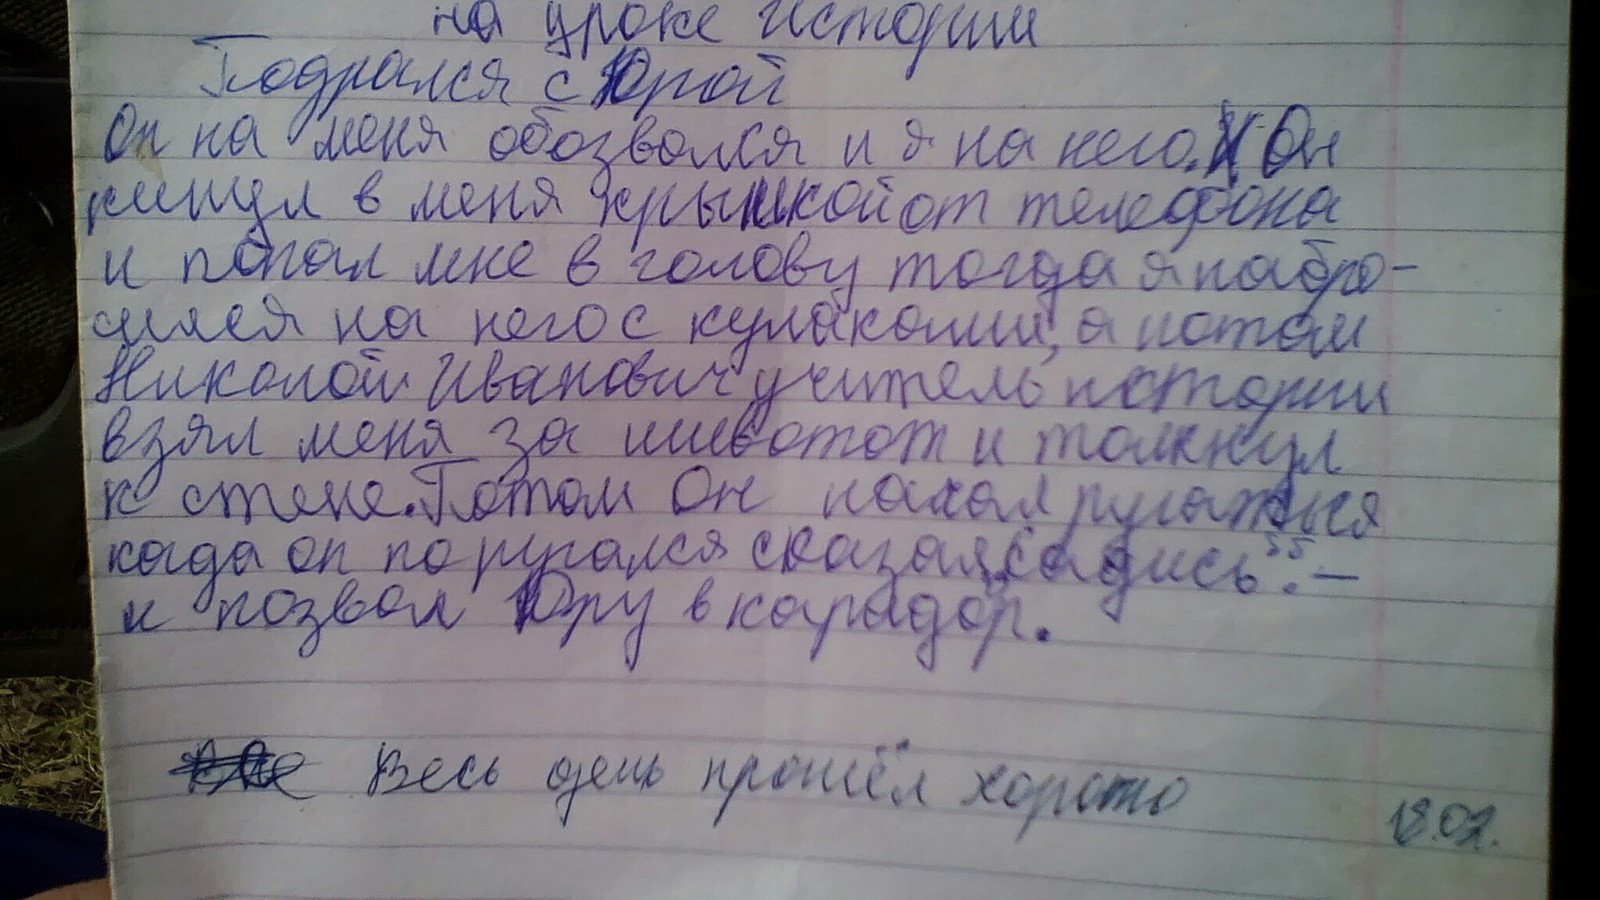 на уроке истории
Подрался с Юрой
Он на меня обозвался и я на него. Он
кинул в меня крышкой от телефона
и попал мне в голову тогда я набро-
сился на него с кулаками, а потом
Николай Иванович учитель истории
взял меня за шивотот и толкнул
к стене. Потом Он начал ругаться
када он поругался сказал "садись". —
и позвал Юру в карадор.
Весь день прошёл хорошо
18.02.